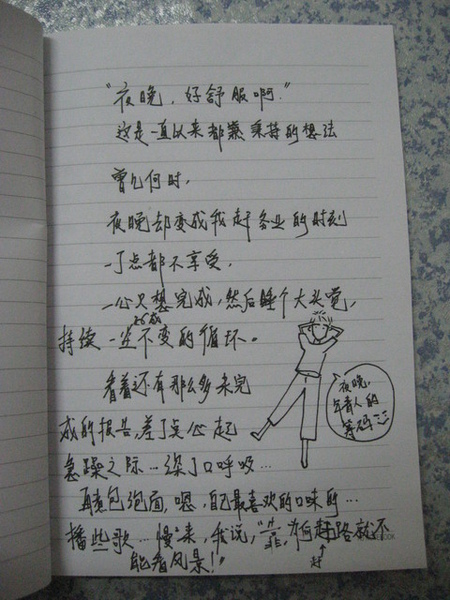 "夜晚，好舒服啊."
这是一直以来都秉持的想法
曾几何时，
夜晚却变成我赶各业的时刻
一丁点都不享受，
一心只想完成，然后睡个大头觉，
持续一坐不变的循环。
看着还有那么多未完
成的报告，差了点心起
急躁之际…深了口呼吸…
再煮包泡面，嗯，自己最喜欢的口味的…
播些歌…慢慢来，我说，"，为何赶路就不
能看风景！"
赶
夜晚，
年青人的
筹码